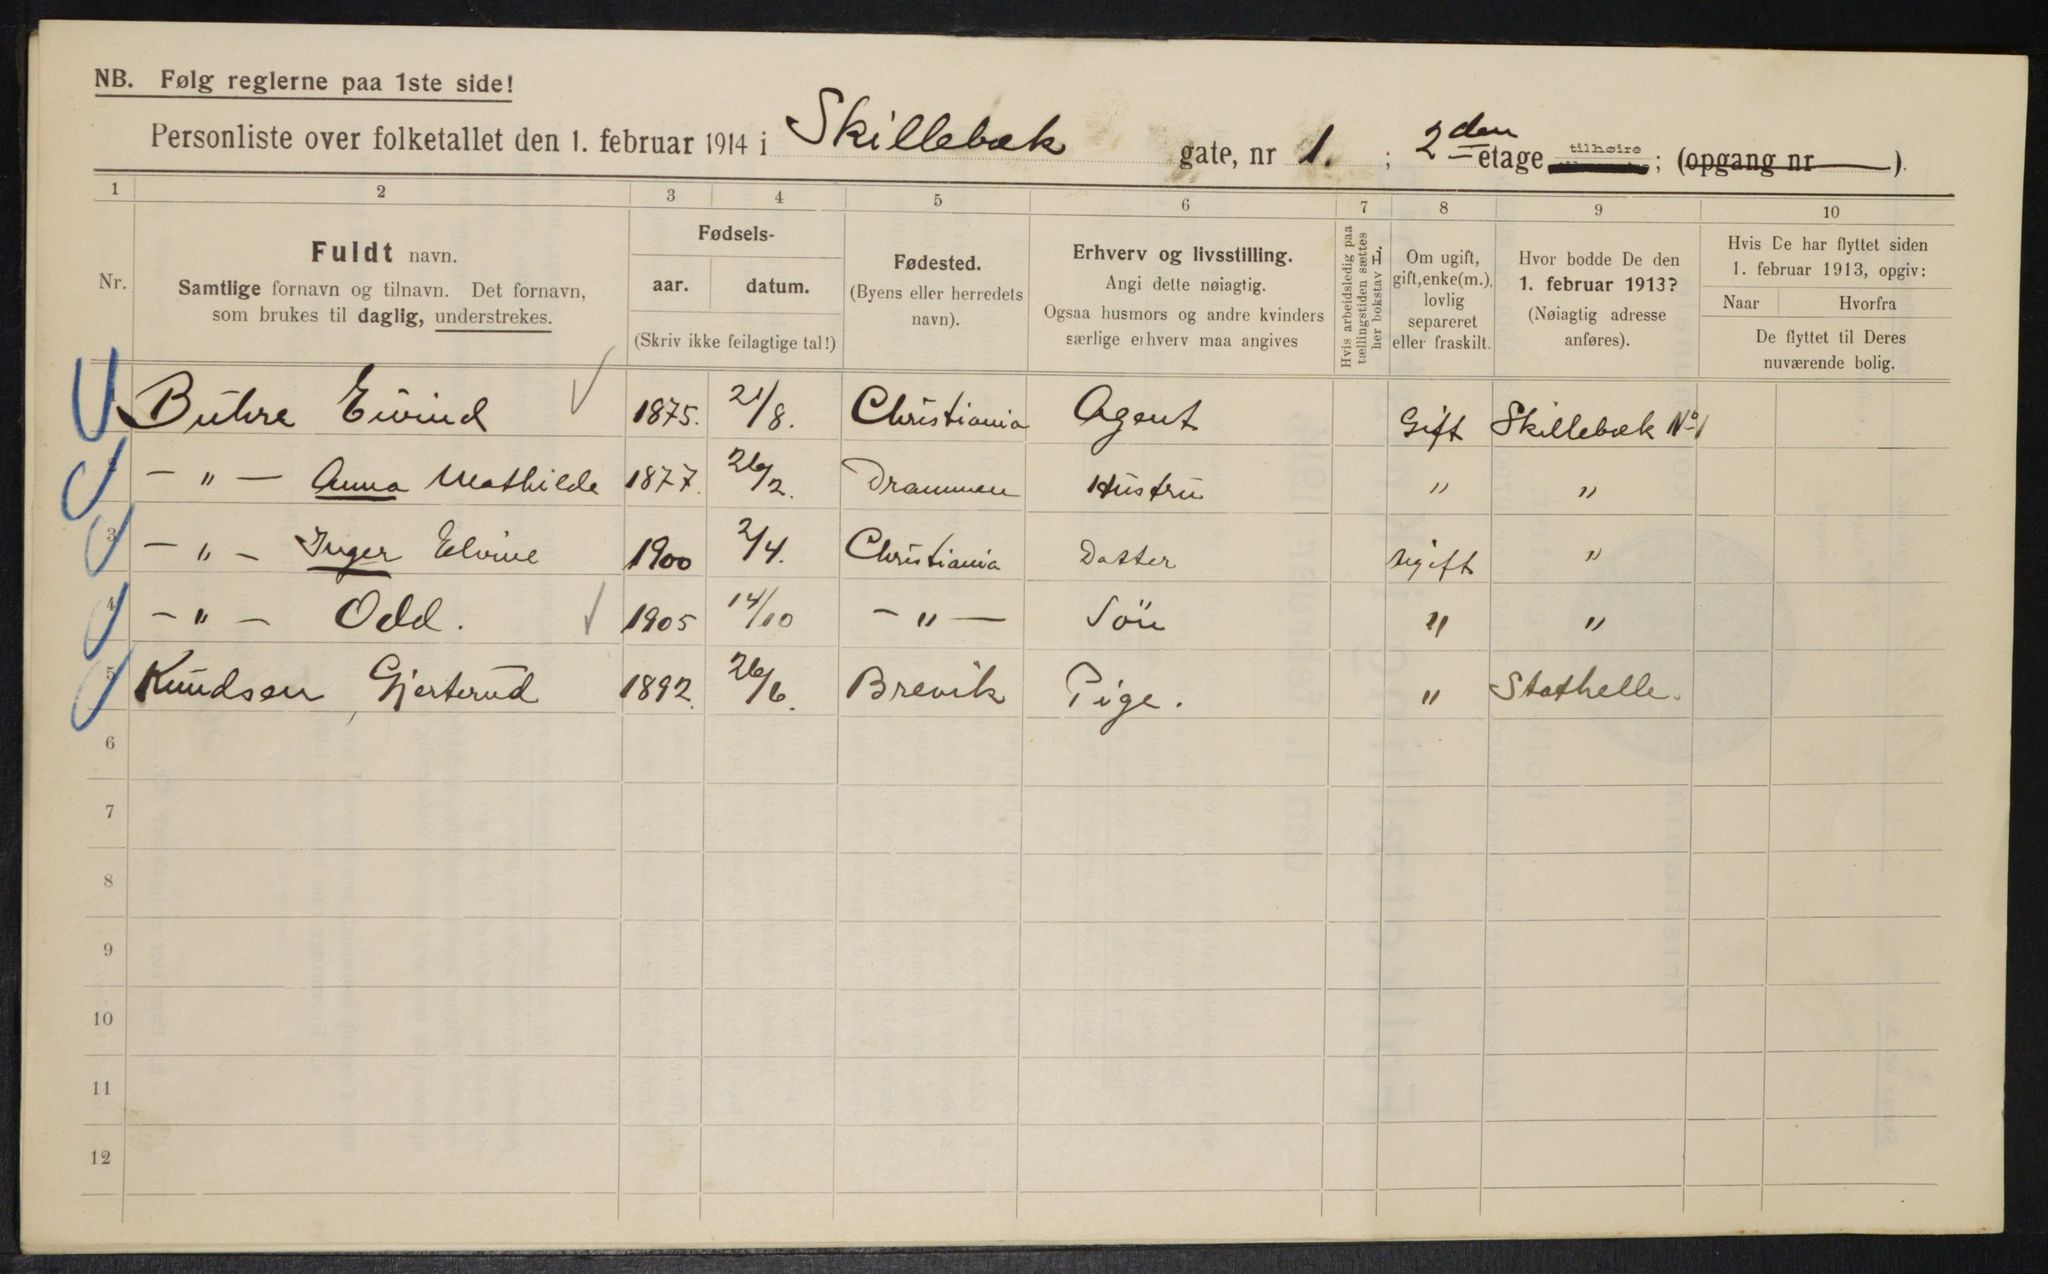 NB. Følg reglerne paa 1ste side!
Personliste over folketallet den 1. februar 1914 i Skillebæk gate, nr 1. ; 2den etage tilhøire ; (opgang nr ).
1 2 3 4 5 6 7 8 9 10
Nr.
Fuldt navn.
Samtlige fornavn og tilnavn. Det fornavn,
som brukes til daglig, understrekes.
Fødsels-
aar. datum.
(Skriv ikke feilagtige tal!)
Fødested.
(Byens eller herredets
navn).
Erhverv og livsstilling.
Angi dette nøiagtig.
Ogsaa husmors og andre kvinders
særlige erhverv maa angives
Hvis arbeidsledig paa
tællingstiden sættes
her bokstav L.
Om ugift,
gift, enke(m.),
lovlig
separeret
eller fraskilt.
Hvor bodde De den
1. februar 1913?
(Nøiagtig adresse
anføres).
Hvis De har flyttet siden
1. februar 1913, opgiv:
Naar Hvorfra
De flyttet til Deres
nuværende bolig.
Buhre Eivind 1875. 21/8. Christiania Agent Gift Skillebæk No 1
2 — " — Anna Mathilde 1877. 26/2. Drammen Hustru " "
3 — " — Inger Elvine 1900 2/4. Christiania Datter ugift "
4 — " — Odd. 1905 14/10 — " — Sön " "
5 Knudsen, Gjertrud 1892. 26/6. Brevik Pige. " Stathelle.
6
7
8
9
10
11
12